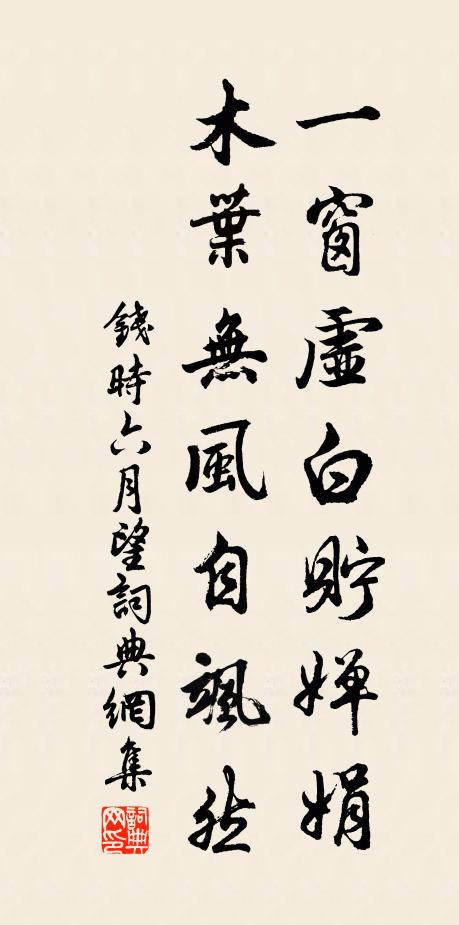 一窗虛白貯嬋娟
木葉無風自颯然
錢時六月望詞典網集
詞典网印